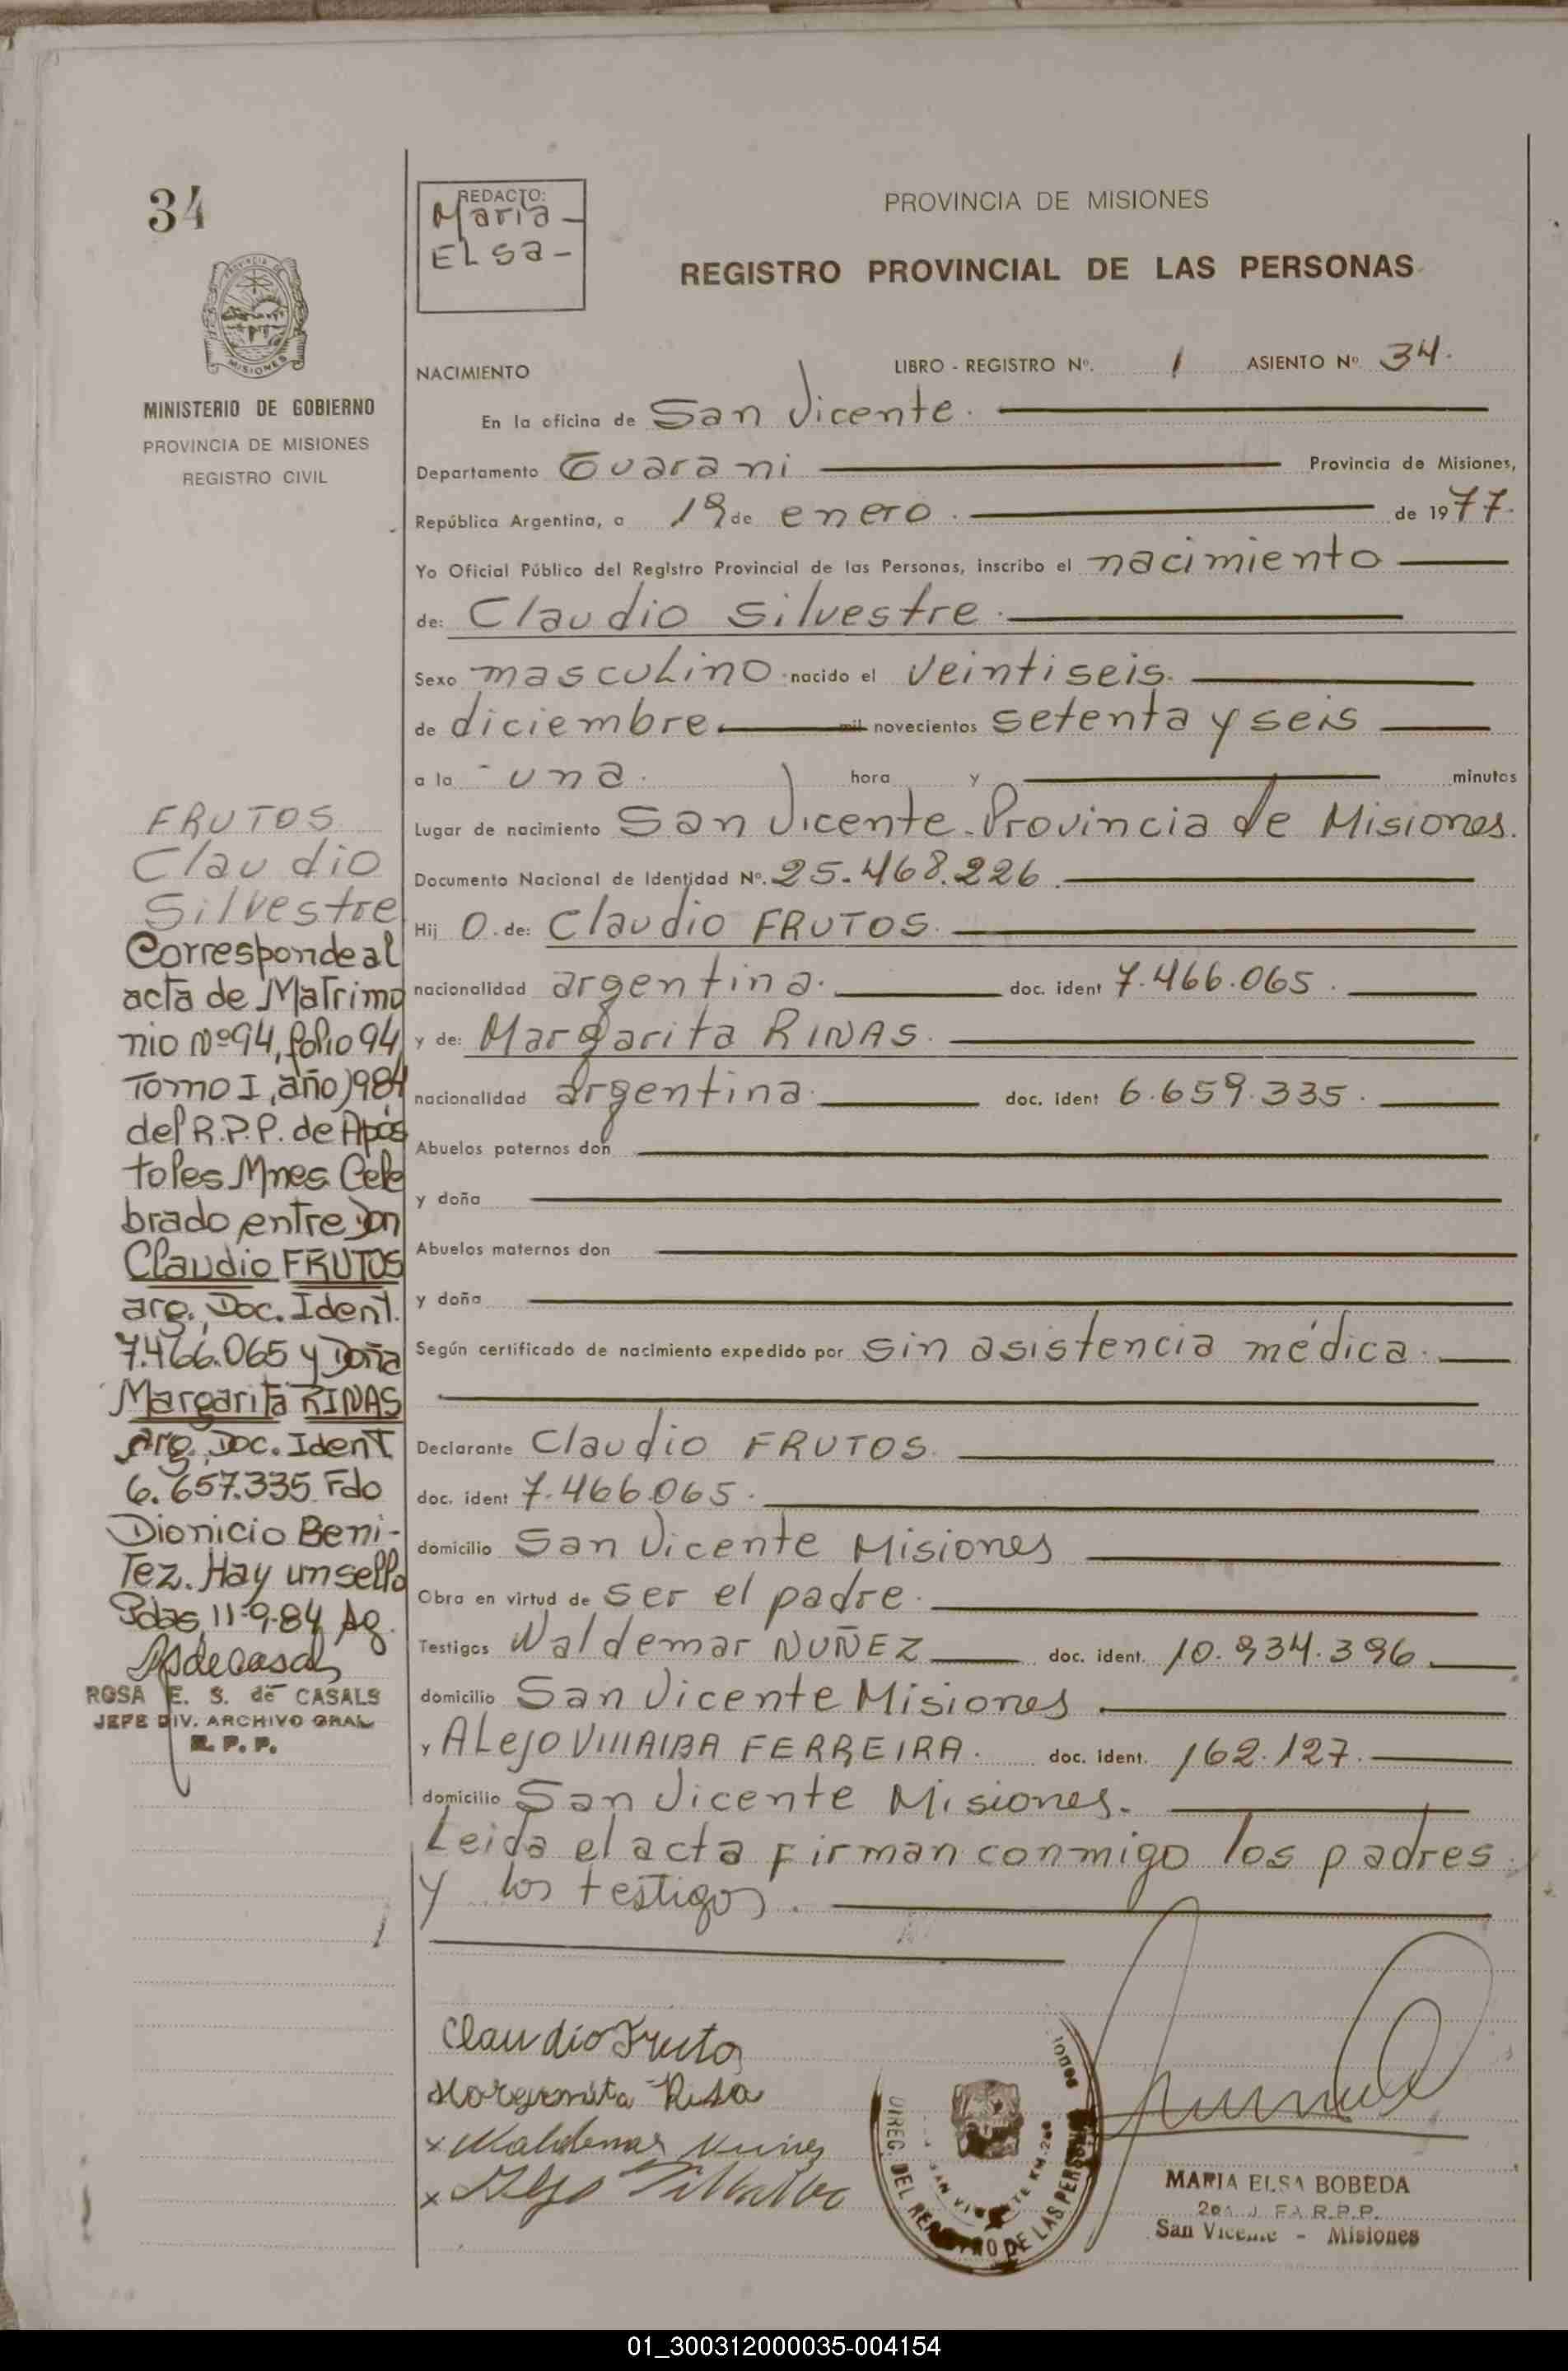 34
REDACTO:
Maria -
ELsa -
PROVINCIA DE MISIONES
REGISTRO PROVINCIAL DE LAS PERSONAS
PROVINCIA DE
MISIONES
MINISTERIO DE GOBIERNO
PROVINCIA DE MISIONES
REGISTRO CIVIL
NACIMIENTO LIBRO - REGISTRO Nº. 1 ASIENTO Nº 34.
En la oficina de San Vicente.
Departamento Guarani Provincia de Misiones,
República Argentina, a 19 de enero. de 1977.
Yo Oficial Público del Registro Provincial de las Personas, inscribo el nacimiento
de: Claudio Silvestre.
Sexo masculino. nacido el veintiseis.
de diciembre mil novecientos setenta y seis
a la - una. hora y minutos
Lugar de nacimiento San Vicente. Provincia de Misiones.
Documento Nacional de Identidad Nº. 25.468.226.
Hij O. de: Claudio FRUTOS.
nacionalidad argentina. doc. ident 7.466.065.
y de: Margarita RINAS.
nacionalidad argentina. doc. ident 6.659.335.
Abuelos paternos don
y doña
Abuelos maternos don
y doña
Según certificado de nacimiento expedido por sin asistencia médica.
Declarante Claudio FRUTOS.
doc. ident 7.466.065.
domicilio San Vicente Misiones
Obra en virtud de ser el padre.
Testigos Waldemar NUÑEZ doc. ident. 10.934.396.
domicilio San Vicente Misiones
y ALejo VIllAlBA FERREIRA. doc. ident. 162.127.
domicilio San Vicente Misiones.
Leida el acta firman conmigo los padres
y los testigos.
FRUTOS
Claudio
Silvestre
Corresponde al
acta de Matrimo
nio Nº94, folio 94
Tomo I, año 1984
del R.P.P. de Após
toles Mnes. Cele
brado entre Don
Claudio FRUTOS
arg., Doc. Ident.
7.466.065 y Doña
Margarita RINAS
arg., Doc. Ident
6.657.335 Fdo
Dionicio Beni-
Tez. Hay un sello
Pdas, 11-9-84 Ag.
ROSA E. S. de CASALS
JEFE DIV. ARCHIVO GRAL
R. P. P.
Claudio Fruto
Waldemar Nuñes
DIREG. DEL REGISTRO DE LAS PERSONAS
SAN VICENTE KM-260
MARIA ELSA BOBEDA
R.P.P.
San Vicente - Misiones
01_300312000035-004154